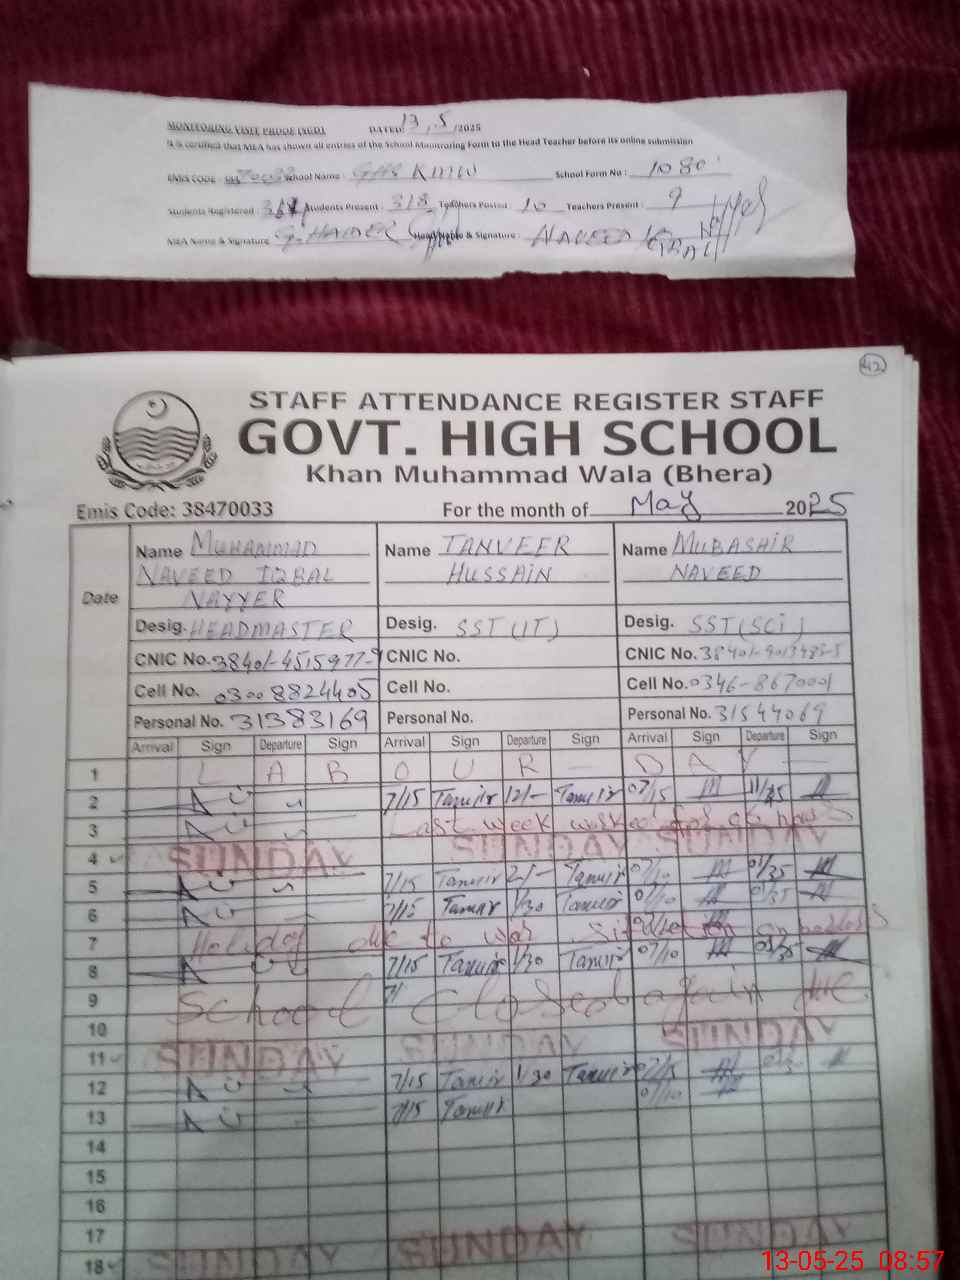 MONITORING VISIT PROOF (SED) DATED: 13.5/2025
It is certified that MEA has shown all entries of the School Monitoring Form to the Head Teacher before its online submission
EMIS CODE : School Name : GHS KMW School Form No : 1080
Students Registered : Students Present : 318 Teachers Posted : 10 Teachers Present : 9
MEA Name & Signature G. HAIDER Head Name & Signature : NAVEED IQBAL
42
STAFF ATTENDANCE REGISTER STAFF
GOVT. HIGH SCHOOL
Khan Muhammad Wala (Bhera)
Emis Code: 38470033 For the month of May 2025
Date
Name MUHAMMAD NAVEED IQBAL NAYYER
Name TANVEER HUSSAIN
Name MUBASHIR NAVEED
Desig. HEADMASTER Desig. SST(IT) Desig. SST(SCI)
CNIC No. 38401-4515977-9 CNIC No. CNIC No. 38401-9013483-5
Cell No. 0300 8824405 Cell No. Cell No. 0346-8670001
Personal No. 31383169 Personal No. Personal No. 31544069
Arrival Sign Departure Sign Arrival Sign Departure Sign Arrival Sign Departure Sign
1 L A B O U R - D A Y -
2 7/15 Tanvir 12/- Tanvir 07/15 11/45
3 Last week worked
4 SUNDAY SUNDAY SUNDAY
5 7/15 Tanvir 2/- Tanvir 07/10 01/35
6 7/15 Tanvir 1/30 Tanvir 07/10 01/35
7 Holiday due to war situation on borders
8 7/15 Tanvir 1/30 Tanvir 07/10
9 School closed again due
10
11 SUNDAY SUNDAY SUNDAY
12 7/15 Tanvir 1/30 Tanvir 07/15
13 7/15 Tanvir 07/10
14
15
16
17
18 SUNDAY SUNDAY SUNDAY
13-05-25 08:57